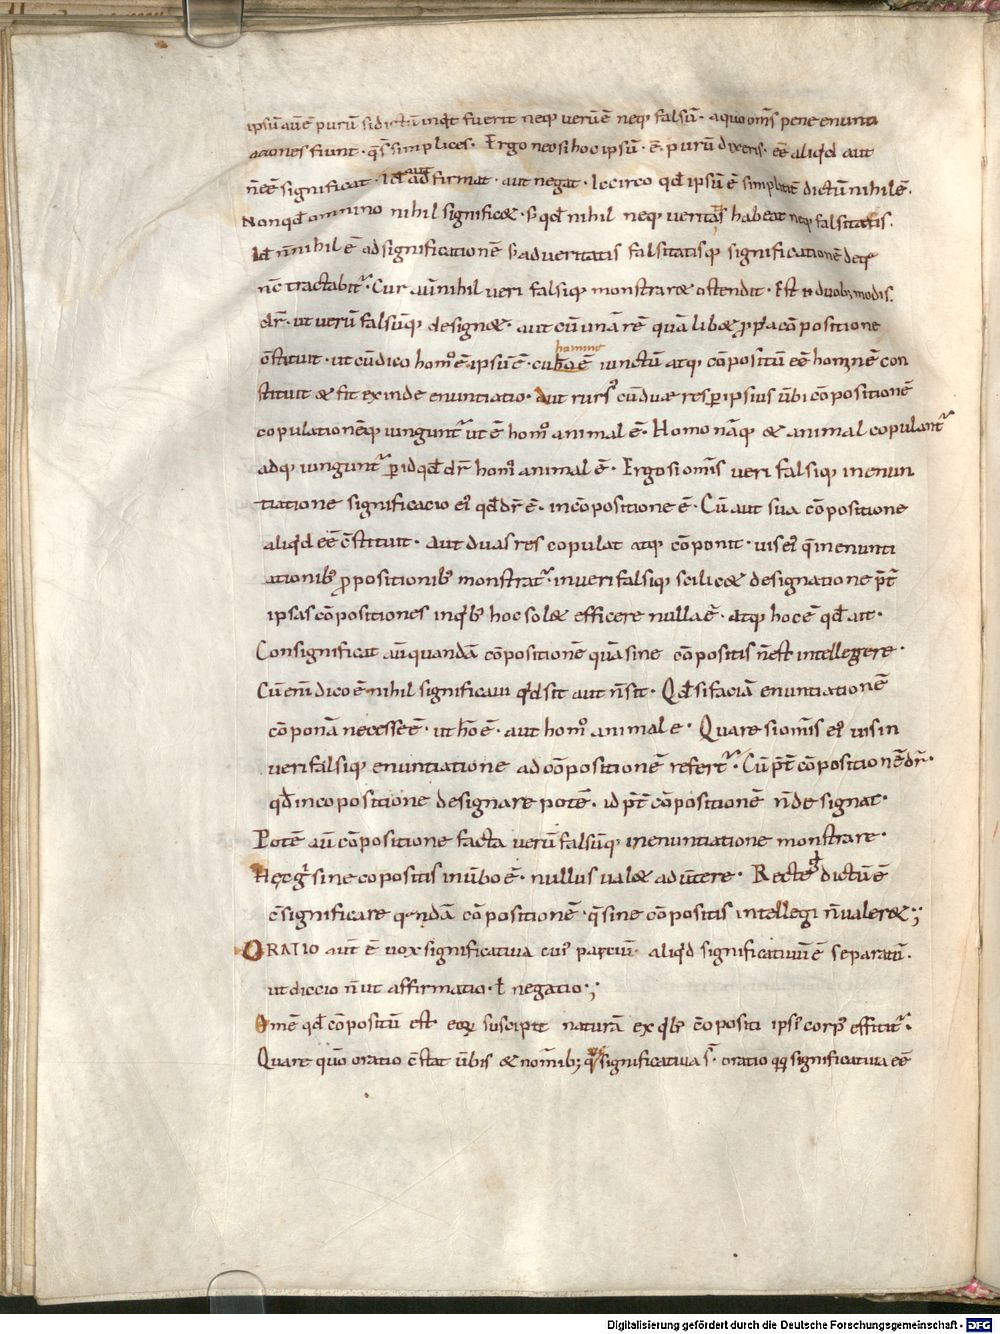 ipsū aūē purū si dictū inq̇t fuerit neq; verū ē neq; falsū · a quo om̄s pene enuntia
aciones fiunt · q̄ s̄ simplices · Ergo nec si hoc ipsū · ē · purū dixeris · eē aliq̇d aut
n̄ eē significat · Id aut adfirmat · aut negat · Iccirco qđ ipsū ē simplicit̄ dictū nihil ē ·
Non qđ omnino nihil significɇ · s; qđ nihil neq; veritatis habeat neq; falsitatis ·
Id n̄ nihil ē ad significationē s; ad veritatis falsitatisq; significationē de q̄
nc̄ tractabit̄ · Cur aū nihil veri falsiq; monstrarɇ ostendit · Est n̄ duob; modis
dr̄ · ut verū falsūq; designɇ · aut cū unā rē quā libɇ ꝓpria cōpositione
cōstituit · ut cū dico homo ē ipsū ē · cū uerbo ē iunctū atq; cōpositū eē hominē con
homine
stituit & fit exinde enuntiatio · Aut rurs' cū duæ res per ipsius ūbi cōpositionē
copulationēq; iungunt̄ ut ē homo animal ē · Homo nāq; & animal copulant̄
adq; iungunt̄ ꝑ id qđ dr̄ homo animal ē · Ergo si om̄is veri falsiq; in enun
tiatione significacio ei' qđ dr̄ ē · in cōpositione ē · Cū aut sua cōpositione
aliq̇d eē cōstituit · aut duas res copulat atq; cōponit · uis ei' q̄ in enunti
ationib' ꝓpositionib' monstrat̄ · in veri falsiq; scilicɇ designatione p̄t̄
ipsas cōpositiones in q̇b' hoc solɇ efficere nulla ē · atq; hoc ē qđ ait ·
Consignificat aū quandā cōpositionē quā sine cōpositis n̄ est intellegere ·
Cū enī dico ē nihil significaui q̇d sit aut n̄ sit · Qđ si faciā enuntiationē
cōponā necesse ē · ut hō ē · aut homo animal e · Quare si om̄is ei' uis in
veri falsiq; enuntiatione ad cōpositionē refert̄ · Cū p̄t̄ cōpositionē dr̄ ·
qđ in copositione designare potē · id p̄t̄ cōpositionē n̄ designat ·
Potē aū cōpositione facta verū falsūq; in enuntiatione monstrare ·
Hec gͥ sine copositis in ūbo ē · nullus ualɇ aduertere · Recte gͥ dictū ē
cōsignificare quandā cōpositionē · q̄ sine cōpositis intellegi n̄ valerɇ ;
ORATIO aut ē vox significativa cui' partiū · aliq̇d significativū ē separatū ·
ut diccio n̄ ut affirmatio · ł negatio · ;
Omē qđ cōpositū est eoꝝ suscipit naturā ex q̇b' cōpositi ips' corp' effitit̄ ·
Quare quō oratio cōstat ūbis & nomīnib; q̄ significativa s̄ · oratio qq; significativa eē